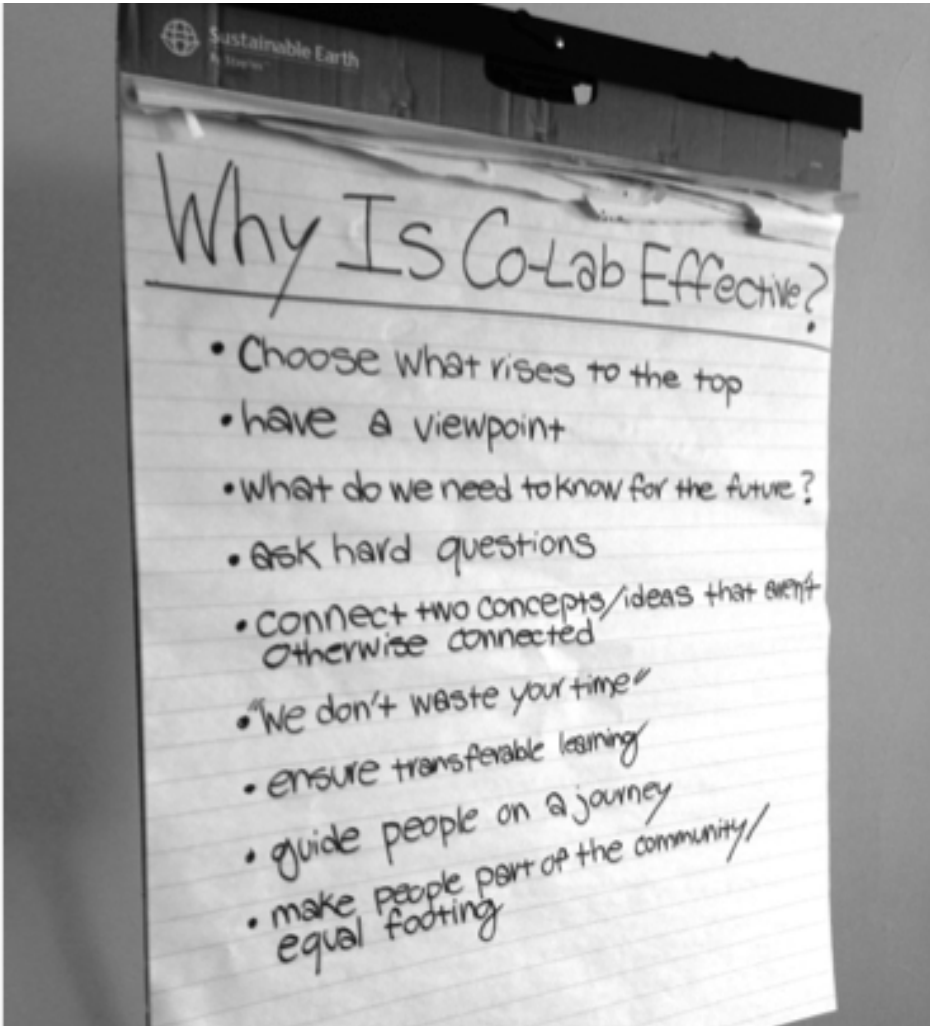 Sustainable Earth
By Staples
Why Is Co-Lab Effective?
• Choose what rises to the top
• have a viewpoint
• What do we need to know for the future?
• ask hard questions
• connect two concepts/ideas that aren't
otherwise connected
• "We don't waste your time"
• ensure transferable learning
• guide people on a journey
• make people part of the community/
equal footing